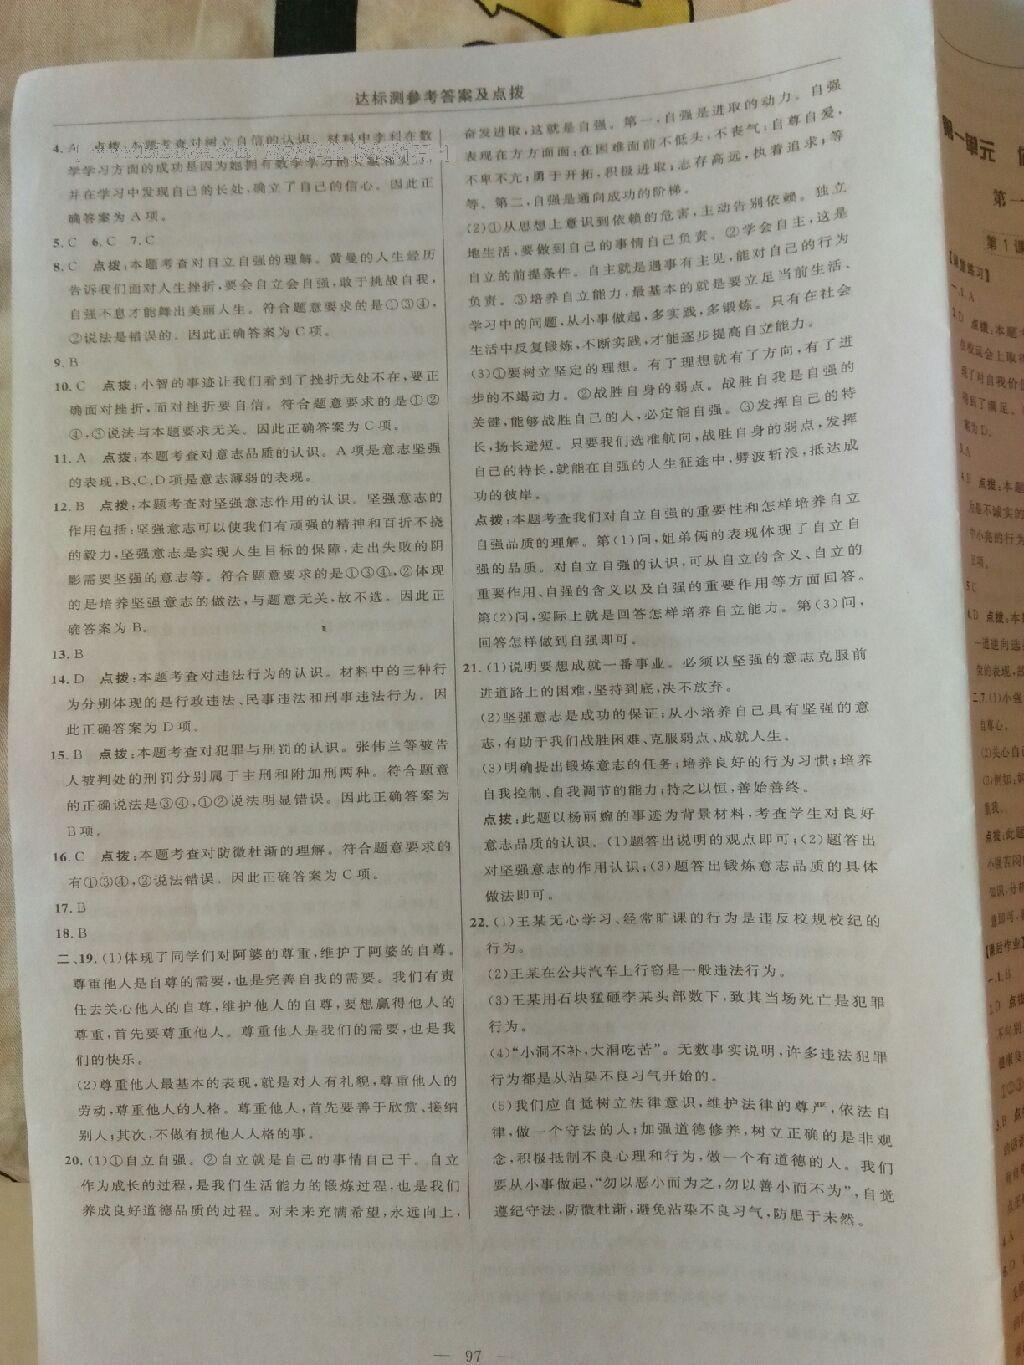 达标测参考答案及点拨
4. A 点拨:本题考查对树立自信的认识。材料中李科在数
学学习方面的成功是因为她拥有数学学习的
并在学习中发现自己的长处,确立了自己的信心。因此正
确答案为A项。
5. C 6. C 7. C
8. C 点拨:本题考查对自立自强的理解。黄曼的人生经历
告诉我们面对人生挫折,要会自立会自强,敢于挑战自我,
自强不息才能舞出美丽人生。符合题意要求的是①③④,
②说法是错误的。因此正确答案为C项。
9. B
10. C 点拨:小智的事迹让我们看到了挫折无处不在,要正
确面对挫折,面对挫折要自信。符合题意要求的是①②
④,③说法与本题要求无关。因此正确答案为C项。
11. A 点拨:本题考查对意志品质的认识。A项是意志坚强
的表现,B、C、D项是意志薄弱的表现。
12. B 点拨:本题考查对坚强意志作用的认识。坚强意志的
作用包括:坚强意志可以使我们有顽强的精神和百折不挠
的毅力,坚强意志是实现人生目标的保障,走出失败的阴
影需要坚强的意志等。符合题意要求的是①③④,②体现
的是培养坚强意志的做法,与题意无关,故不选。因此正
确答案为B。
13. B
14. D 点拨:本题考查对违法行为的认识。材料中的三种行
为分别体现的是行政违法、民事违法和刑事违法行为。因
此正确答案为D项。
15. B 点拨:本题考查对犯罪与刑罚的认识。张伟兰等被告
人被判处的刑罚分别属于主刑和附加刑两种。符合题意
的正确说法是③④,①②说法明显错误。因此正确答案为
B项。
16. C 点拨:本题考查对防微杜渐的理解。符合题意要求的
有①③④,②说法错误。因此正确答案为C项。
17. B
18. B
二、19. (1)体现了同学们对阿婆的尊重,维护了阿婆的自尊。
尊重他人是自尊的需要,也是完善自我的需要。我们有责
任去关心他人的自尊,维护他人的自尊,要想赢得他人的
尊重,首先要尊重他人。尊重他人是我们的需要,也是我
们的快乐。
(2)尊重他人最基本的表现,就是对人有礼貌,尊重他人的
劳动,尊重他人的人格。尊重他人,首先要善于欣赏、接纳
别人;其次,不做有损他人人格的事。
20. (1)①自立自强。②自立就是自己的事情自己干。自立
作为成长的过程,是我们生活能力的锻炼过程,也是我们
养成良好道德品质的过程。对未来充满希望,永远向上,
奋发进取,这就是自强。第一,自强是进取的动力。自强
表现在方方面面:在困难面前不低头、不丧气;自尊自爱,
不卑不亢;勇于开拓,积极进取;志存高远,执着追求;等
等。第二,自强是通向成功的阶梯。
(2)①从思想上意识到依赖的危害,主动告别依赖。独立
地生活,要做到自己的事情自己负责。②学会自主,这是
自立的前提条件。自主就是遇事有主见,能对自己的行为
负责。③培养自立能力,最基本的就是要立足当前生活、
学习中的问题,从小事做起,多实践,多锻炼。只有在社会
生活中反复锻炼,不断实践,才能逐步提高自立能力。
(3)①要树立坚定的理想。有了理想就有了方向,有了进
步的不竭动力。②战胜自身的弱点。战胜自我是自强的
关键,能够战胜自己的人,必定能自强。③发挥自己的特
长,扬长避短。只要我们选准航向,战胜自身的弱点,发挥
自己的特长,就能在自强的人生征途中,劈波斩浪,抵达成
功的彼岸。
点拨:本题考查我们对自立自强的重要性和怎样培养自立
自强品质的理解。第(1)问,姐弟俩的表现体现了自立自
强的品质。对自立自强的认识,可从自立的含义、自立的
重要作用、自强的含义以及自强的重要作用等方面回答。
第(2)问,实际上就是回答怎样培养自立能力。第(3)问,
回答怎样做到自强即可。
21. (1)说明要想成就一番事业。必须以坚强的意志克服前
进道路上的困难,坚持到底,决不放弃。
(2)坚强意志是成功的保证;从小培养自己具有坚强的意
志,有助于我们战胜困难、克服弱点、成就人生。
(3)明确提出锻炼意志的任务;培养良好的行为习惯;培养
自我控制、自我调节的能力;持之以恒,善始善终。
点拨:此题以杨丽婉的事迹为背景材料,考查学生对良好
意志品质的认识。(1)题答出说明的观点即可;(2)题答出
对坚强意志的作用认识;(3)题答出锻炼意志品质的具体
做法即可。
22. (1)王某无心学习、经常旷课的行为是违反校规校纪的
行为。
(2)王某在公共汽车上行窃是一般违法行为。
(3)王某用石块猛砸李某头部数下,致其当场死亡是犯罪
行为。
(4)“小洞不补,大洞吃苦”。无数事实说明,许多违法犯罪
行为都是从沾染不良习气开始的。
(5)我们应自觉树立法律意识,维护法律的尊严,依法自
律,做一个守法的人;加强道德修养,树立正确的是非观
念,积极抵制不良心理和行为,做一个有道德的人。我们
要从小事做起,“勿以恶小而为之,勿以善小而不为”,自觉
遵纪守法,防微杜渐,避免沾染不良习气,防患于未然。
— 97 —
第一单元
第一
第1课
【随堂练习】
一、1. A
2. D 点拨:本题
5. C